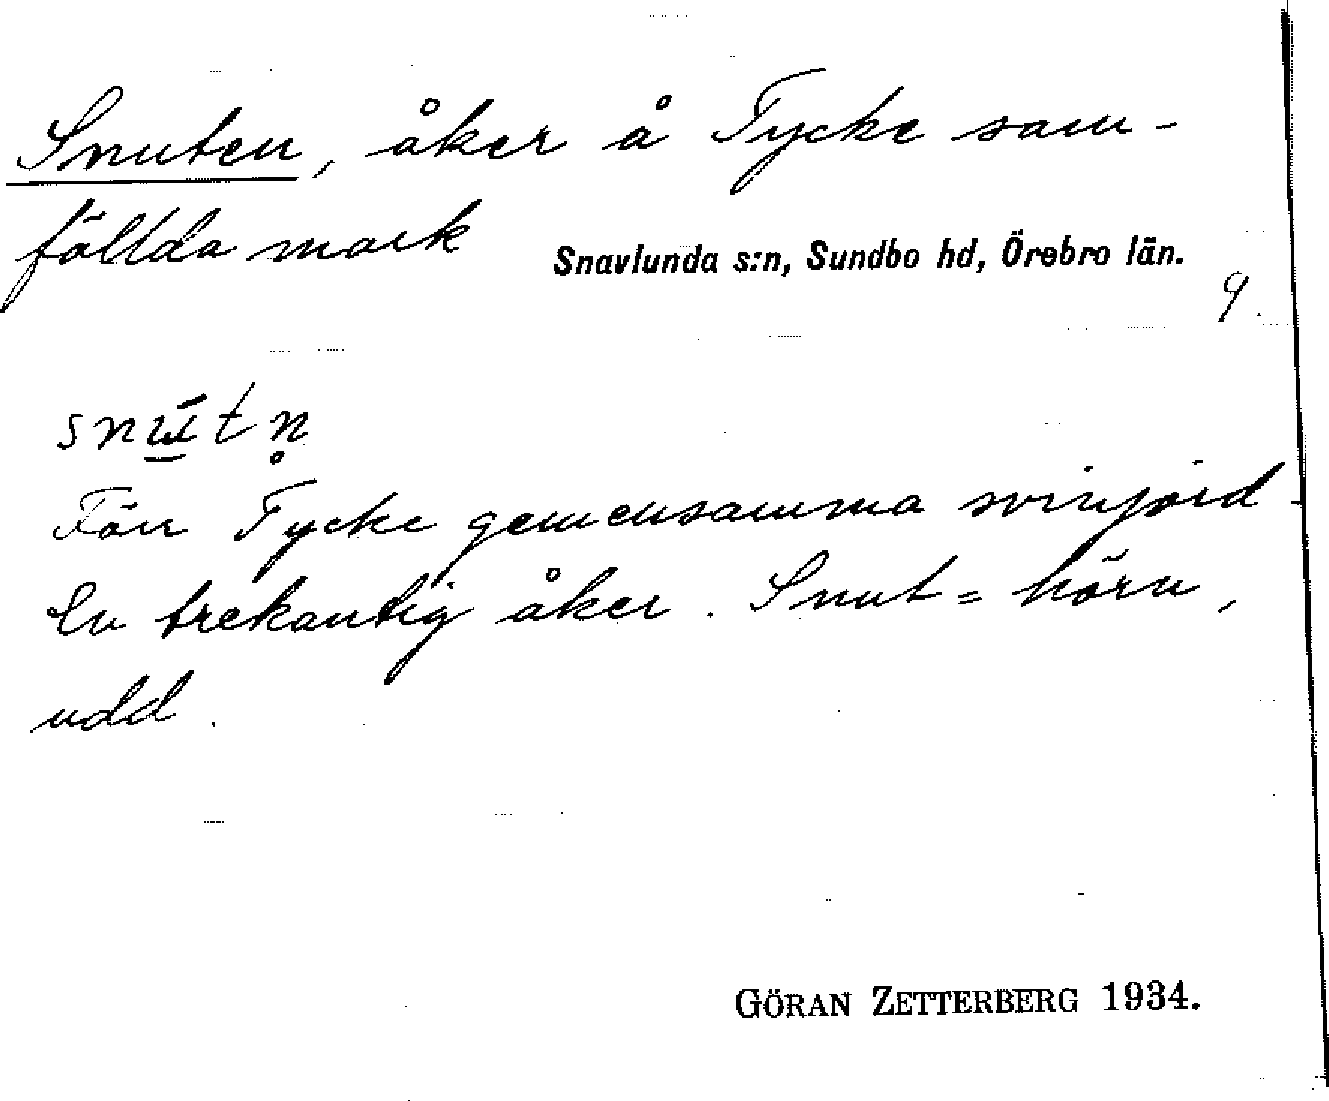 Snuten, åker å Tycke sam-
fällda mark
Snavlunda s:n, Sundbo hd, Örebro län.
9.
snút n̥
Förr Tycke gemensamma svinjord
En trekantig åker. Snut = hörn,
udd.
GÖRAN ZETTERBERG 1934.